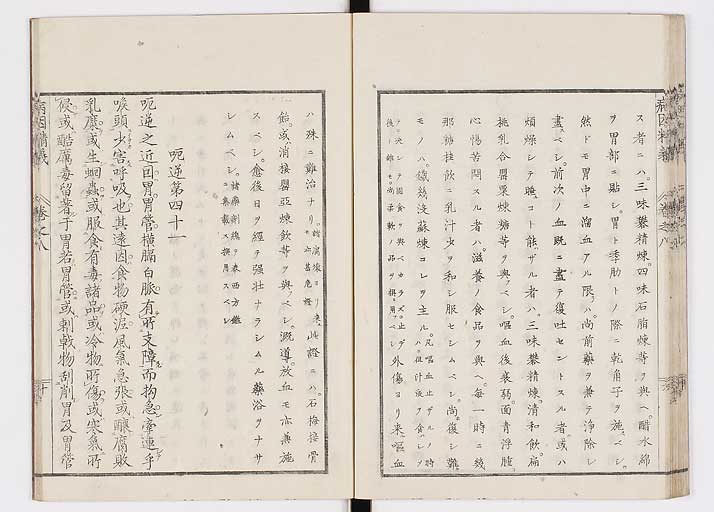 ス者ニハ。三味礬精煉。四味石脂煉等ヲ與ヘ。醋水綿
ヲ胃部ニ貼シ。胃ト季肋トノ際ニ乾角子ヲ施スベシ。
然ドモ胃中ニ溜血アル限ハ。尚前藥ヲ兼テ淨除シ
盡スベシ。前次ノ血既ニ盡テ復吐セントスル者。或ハ
煩燥シテ睡コト能ザル者ハ。三味礬精煉。清和飲。扁
桃乳合罌粟煉糖等ヲ與ベシ。嘔血後衰弱。面青浮腫。
心悸苦悶スル者ハ。滋養ノ食品ヲ與ヘ。毎一時ニ幾
那糖桂飲ニ乳汁少ヲ和シ服セシムベシ。尚復シ難
モノハ。鐵幾浸蘇煉コレヲ主ル。凡嘔血止ザルノ時
ハ殊ニ難治ナリ。此證ニハ。石梅接骨
飴。或消接罌亞煉飲等ヲ與ベシ。溉導。放血モ亦兼施
スベシ。愈後日ヲ經テ強壮ナラシムル藥浴ヲナサ
シムベシ。
呃逆第四十一
呃逆之近因。胃胃管横膈白脈。有所支障而拘急牽連乎
喉頭。少害呼吸也。其遠因。食物硬泥。風氣急張。或釀腐敗
乳糜。或生蛔蟲。或服食有毒諸品。或冷物所傷。或寒氣所
侵。或酷厲毒留著于胃若胃管。或刺戟物刮削胃及胃管
病因精義
卷之八